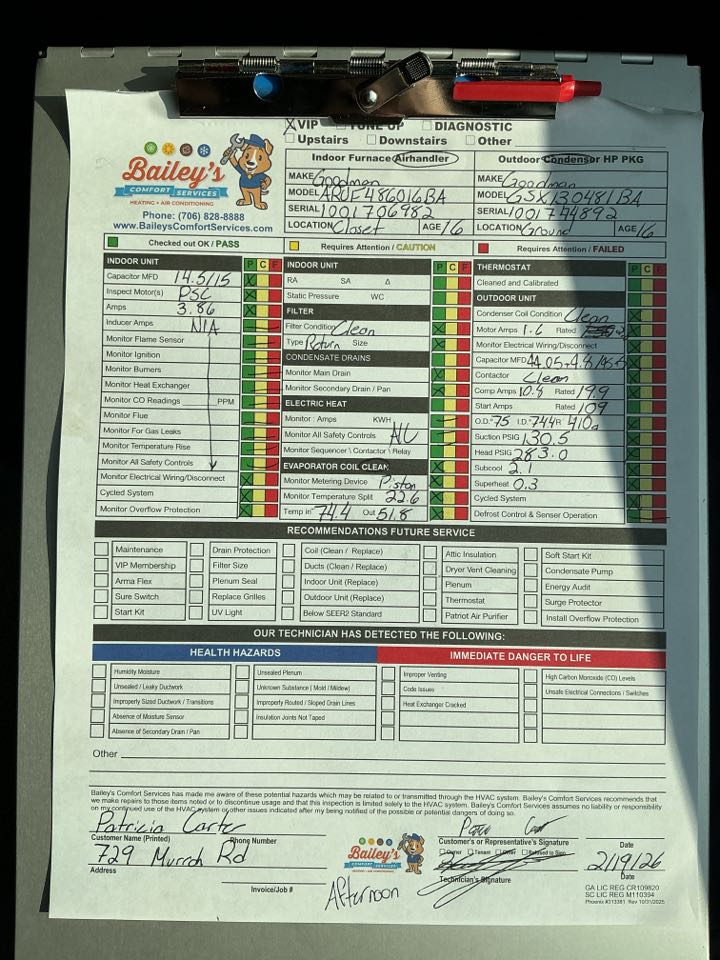 VIP TUNE UP DIAGNOSTIC
Upstairs Downstairs Other
Bailey's
COMFORT SERVICES
HEATING + AIR CONDITIONING
Phone: (706) 828-8888
www.BaileysComfortServices.com
Indoor Furnace Airhandler
MAKE Goodman
MODEL ARUF486016BA
SERIAL 1001706982
LOCATION Closet AGE 16
Outdoor Condensor HP PKG
MAKE Goodman
MODEL GSX130481BA
SERIAL 1001744892
LOCATION Ground AGE 16
Checked out OK / PASS
Requires Attention / CAUTION
Requires Attention / FAILED
INDOOR UNIT P C F
Capacitor MFD 14.5/15
Inspect Motor(s) PSC
Amps 3.86
Inducer Amps N/A
Monitor Flame Sensor
Monitor Ignition
Monitor Burners
Monitor Heat Exchanger
Monitor CO Readings PPM
Monitor Flue
Monitor For Gas Leaks
Monitor Temperature Rise
Monitor All Safety Controls
Monitor Electrical Wiring/Disconnect
Cycled System
Monitor Overflow Protection
INDOOR UNIT P C F
RA SA Δ
Static Pressure WC
FILTER
Filter Condition Clean
Type Return Size
CONDENSATE DRAINS
Monitor Main Drain
Monitor Secondary Drain / Pan
ELECTRIC HEAT
Monitor : Amps KWH
Monitor All Safety Controls
Monitor Sequencer \ Contactor \ Relay
EVAPORATOR COIL CLEAN
Monitor Metering Device Piston
Monitor Temperature Split 22.6
Temp in 74.4 Out 51.8
THERMOSTAT P C F
Cleaned and Calibrated
OUTDOOR UNIT
Condenser Coil Condition Clean
Motor Amps 1.6 Rated
Monitor Electrical Wiring/Disconnect
Capacitor MFD 44.05+4.8/45+5
Contactor Clean
Comp Amps 10.8 Rated 19.9
Start Amps Rated 109
O.D. 75 I.D. 74.4 R 410a
Suction PSIG 130.5
Head PSIG 283.0
Subcool 2.1
Superheat 0.3
Cycled System
Defrost Control & Senser Operation
RECOMMENDATIONS FUTURE SERVICE
Maintenance
VIP Membership
Arma Flex
Sure Switch
Start Kit
Drain Protection
Filter Size
Plenum Seal
Replace Grilles
UV Light
Coil (Clean / Replace)
Ducts (Clean / Replace)
Indoor Unit (Replace)
Outdoor Unit (Replace)
Below SEER2 Standard
Attic Insulation
Dryer Vent Cleaning
Plenum
Thermostat
Patriot Air Purifier
Soft Start Kit
Condensate Pump
Energy Audit
Surge Protector
Install Overflow Protection
OUR TECHNICIAN HAS DETECTED THE FOLLOWING:
HEALTH HAZARDS
Humidity Moisture
Unsealed / Leaky Ductwork
Improperly Sized Ductwork / Transitions
Absence of Moisture Sensor
Absence of Secondary Drain / Pan
Unsealed Plenum
Unknown Substance ( Mold / Mildew)
Improperly Routed / Sloped Drain Lines
Insulation Joints Not Taped
IMMEDIATE DANGER TO LIFE
Improper Venting
Code Issues
Heat Exchanger Cracked
High Carbon Monoxide (CO) Levels
Unsafe Electrical Connections / Switches
Other
Bailey's Comfort Services has made me aware of these potential hazards which may be related to or transmitted through the HVAC system. Bailey's Comfort Services recommends that
we make repairs to those items noted or to discontinue usage and that this inspection is limited solely to the HVAC system. Bailey's Comfort Services assumes no liability or responsibility
on my continued use of the HVAC system or other issues indicated after my being notified of the possible or potential dangers of doing so.
Patricia Carter
Customer Name (Printed) Phone Number
729 Murrah Rd
Address
Invoice/Job #
Bailey's
COMFORT SERVICES
HEATING + AIR CONDITIONING
Afternoon
Customer's or Representative's Signature
Owner Tenant Other Refused to Sign
Technician's Signature
Date
2/19/26
Date
GA LIC REG CR109820
SC LIC REG M110394
Phoenix #313381 Rev 10/31/2025